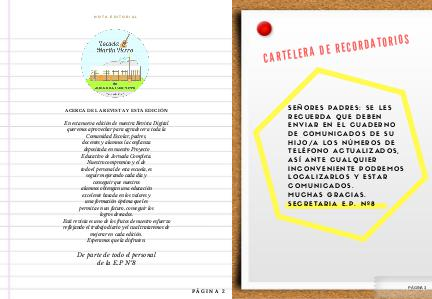 NOTA EDITORIAL
Escuela
Martín Fierro
ACERCA DE LA REVISTA Y ESTA EDICIÓN
En esta nueva edición de nuestra Revista Digital
queremos aprovechar para agradecer a toda la
Comunidad Escolar, padres,
docentes y alumnos la confianza
depositada en nuestro Proyecto
Educativo de Jornada Completa.
Nuestro compromiso y el de
todo el personal de esta escuela, es
seguir mejorando cada día y
conseguir que nuestros
alumnos obtengan una educación
excelente basada en los valores y
una formación óptima que les
permita en un futuro, conseguir los
logros deseados.
Esta revista es uno de los frutos de nuestro esfuerzo
reflejando el trabajo diario y el cual trataremos de
mejorar en cada edición.
Esperamos que la disfruten.
De parte de todo el personal
de la E.P Nº8
PÁGINA 2
CARTELERA DE RECORDATORIOS
SEÑORES PADRES: SE LES
RECUERDA QUE DEBEN
ENVIAR EN EL CUADERNO
DE COMUNICADOS DE SU
HIJO/A LOS NÚMEROS DE
TELÉFONO ACTUALIZADOS,
ASÍ ANTE CUALQUIER
INCONVENIENTE PODREMOS
LOCALIZARLOS Y ESTAR
COMUNICADOS.
MUCHAS GRACIAS.
SECRETARIA E.P. Nº8
PÁGINA 3